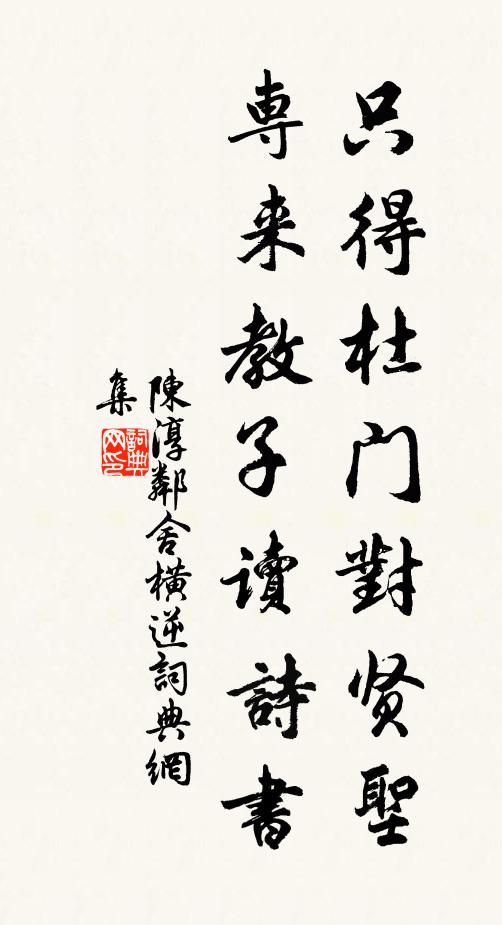 只得杜门對贤聖
専来教子读詩書
陳淳鄰舍橫逆詞典網
集
詞典
网印